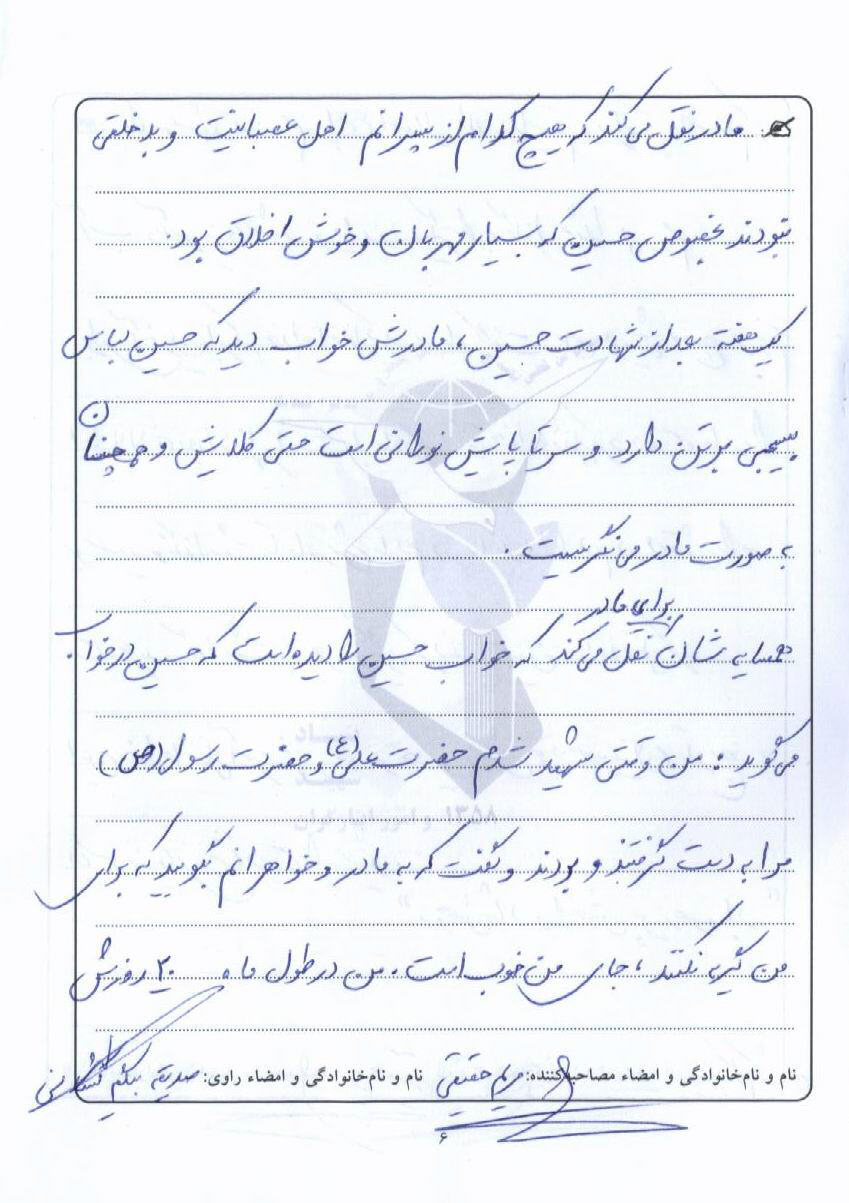 مادر نقل می‌کند که هیچ کدام از پسرانم اهل عصبانیت و بدخلقی
نبودند بخصوص حسین که بسیار مهربان و خوش اخلاق بود.
یک هفته بعد از شهادت حسین، مادرش خواب دید که حسین لباس
بسیجی بر تن دارد و سر تا پایش نورانی است حتی کلاهش و همچنان
به صورت مادر می‌نگریست.
برای مادر
همسایه شان نقل می‌کند که خواب حسین را دیده است که حسین در خواب
می‌گوید: من وقتی شهید شدم حضرت علی (ع) و حضرت رسول (ص)
مرا به دست گرفتند و بردند و گفت که به مادر و خواهرانم بگویید که برای
من گریه نکنند، جای من خوب است. من در طول ماه ۲۰ روزش
نام و نام‌خانوادگی و امضاء مصاحبه‌کننده: مریم حقیقی نام و نام‌خانوادگی و امضاء راوی: صدیقه بیگم
۶
۱۳۵۸